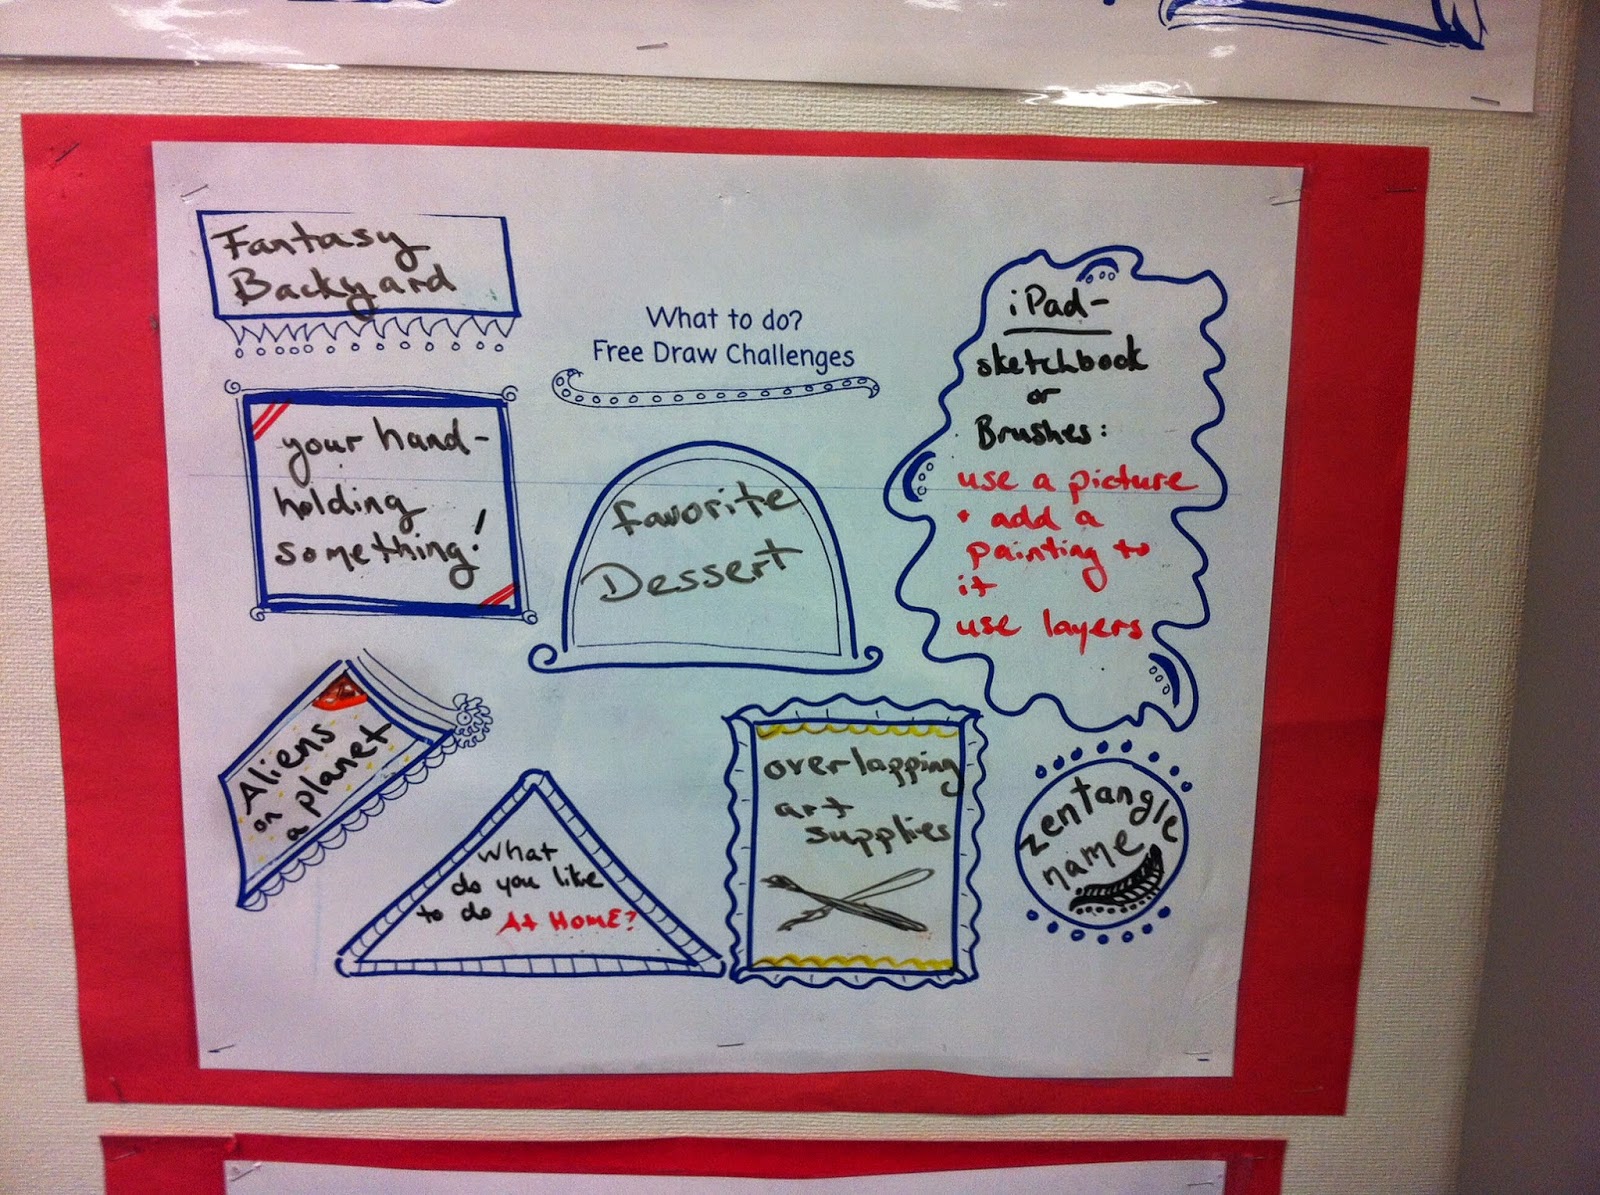 Fantasy
Backyard
What to do?
Free Draw Challenges
iPad-
sketchbook
or
Brushes:
use a picture
+ add a
painting to
it
use layers
your hand-
holding
something!
favorite
Dessert
Aliens
on a planet
What
do you like
to do At HomE?
overlapping
art
supplies
zentangle
name